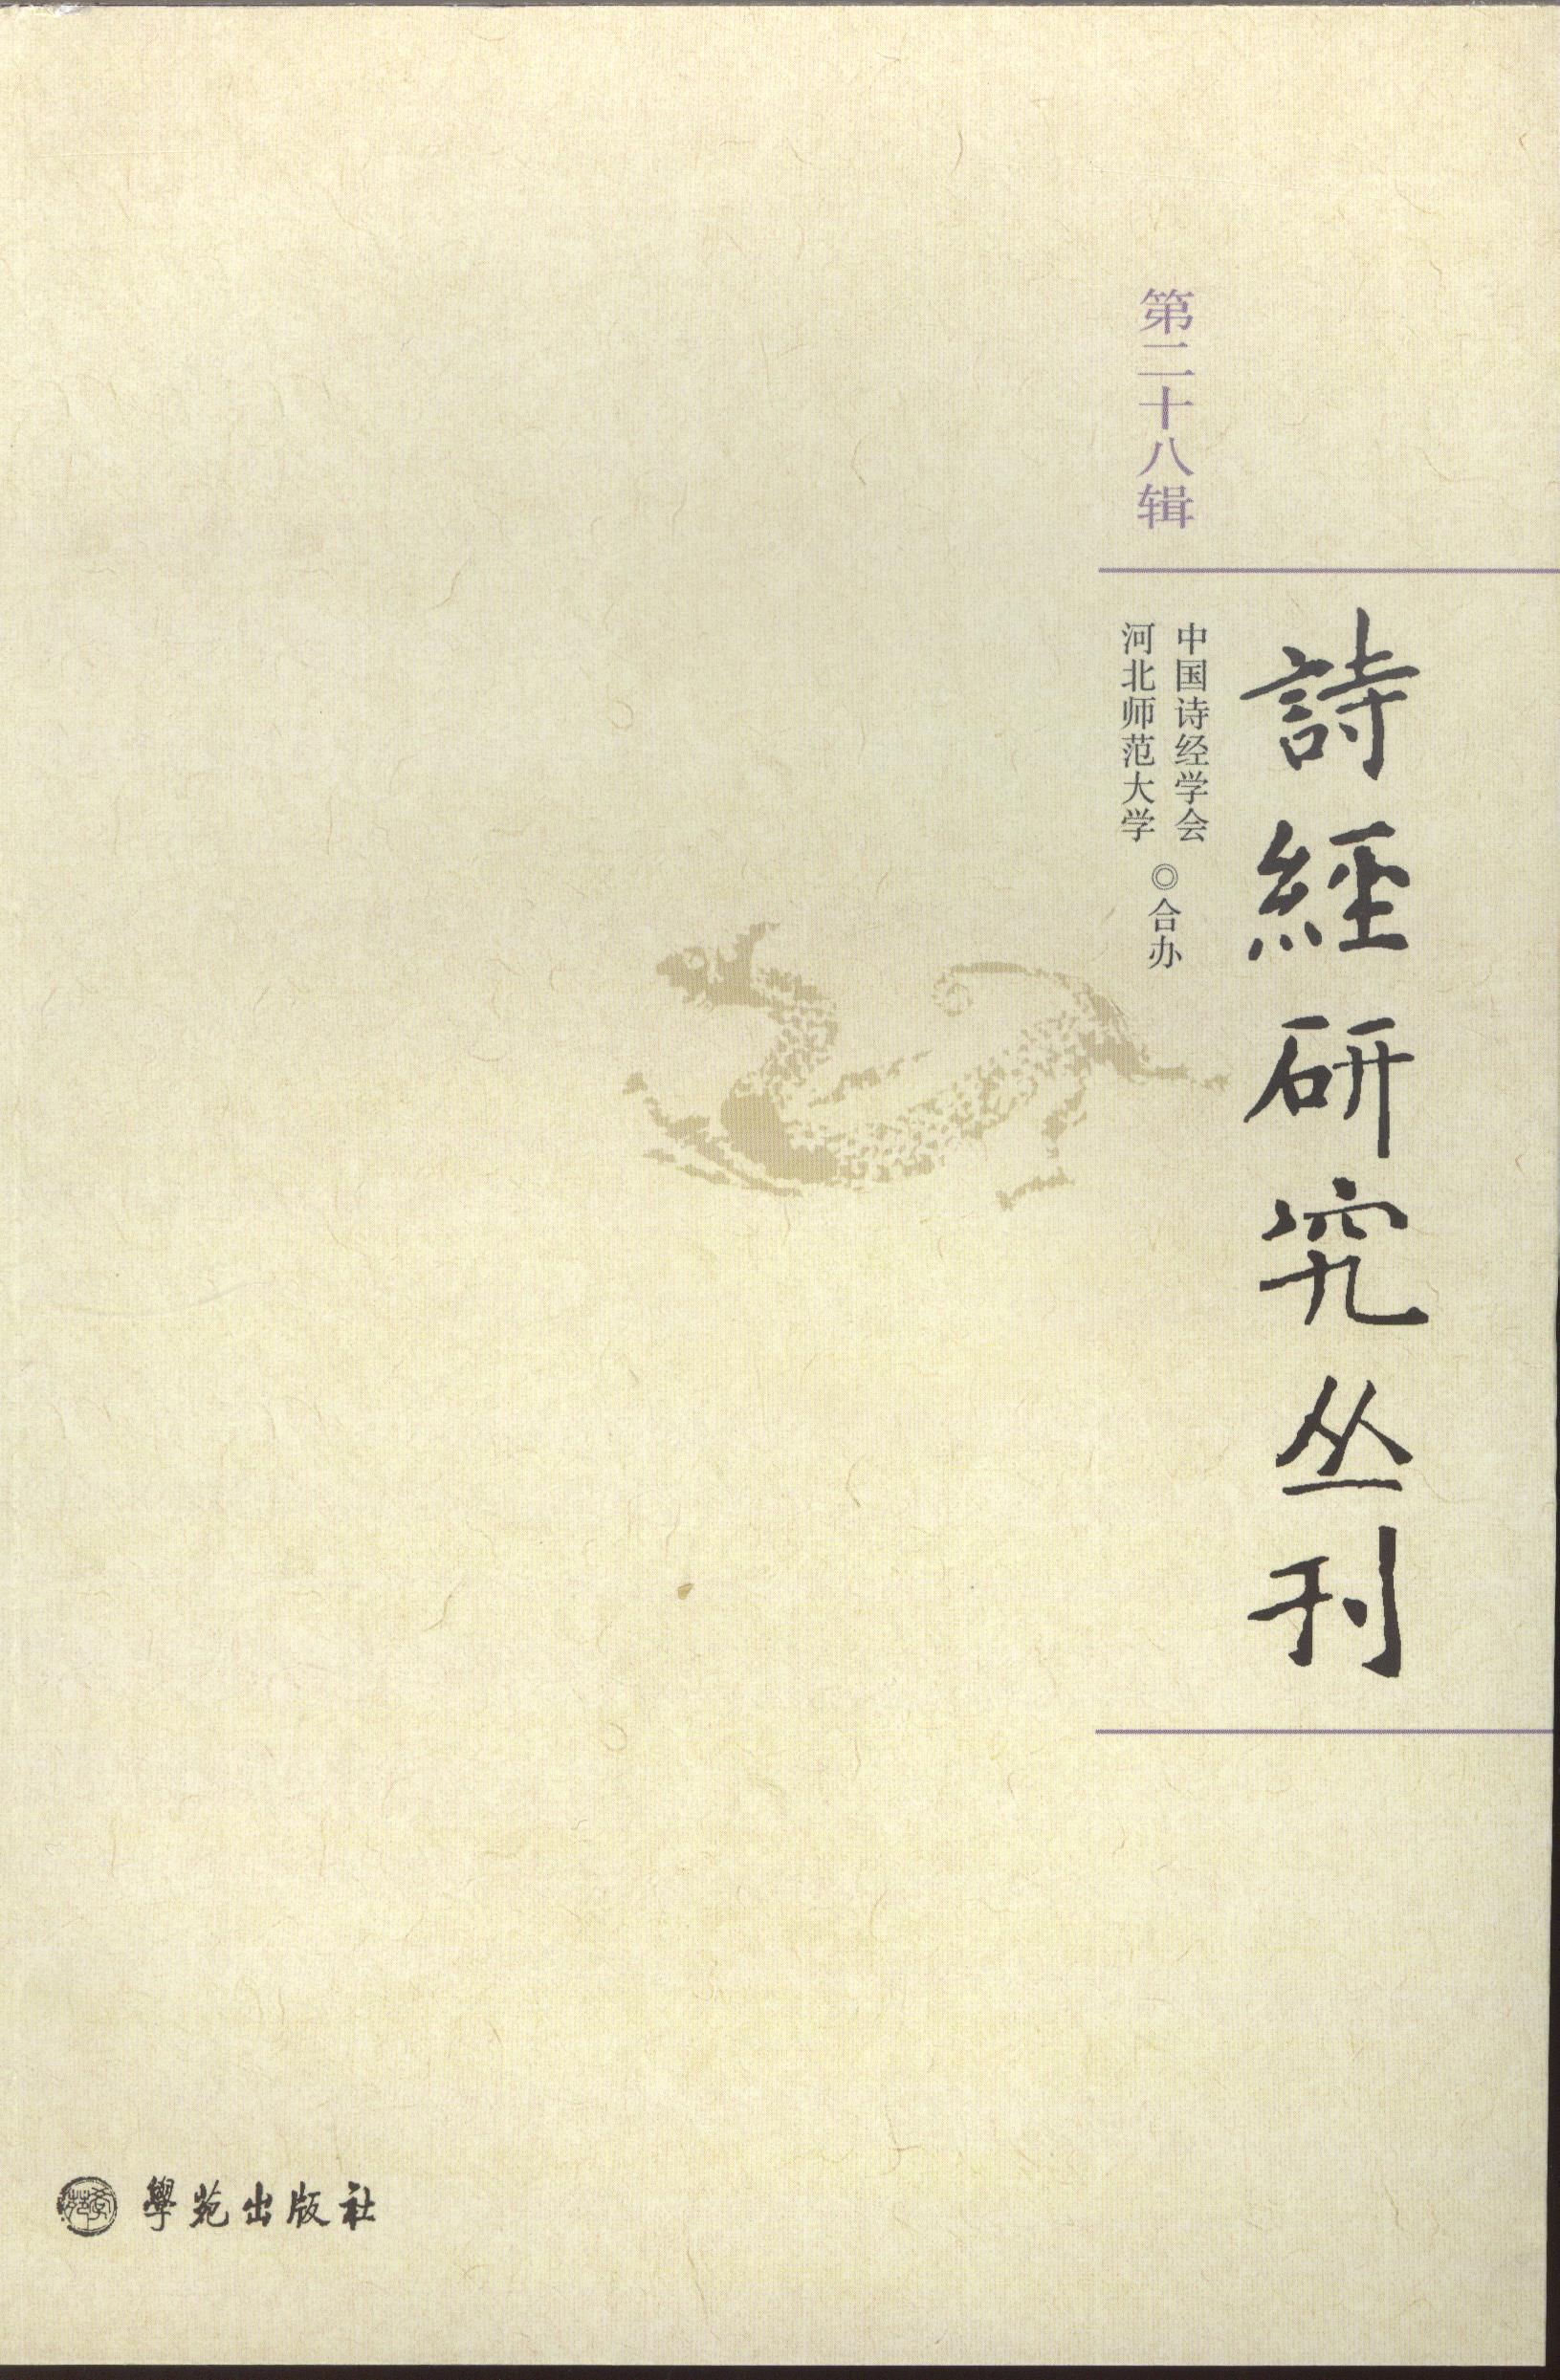 第二十八辑
詩經研究丛刊
中国诗经学会
河北师范大学
◎合办
學苑出版社